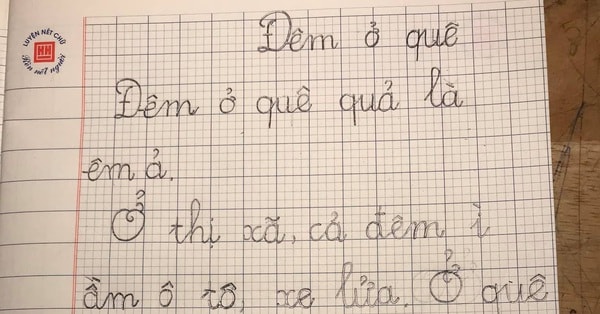 LUYỆN NÉT CHỮ
KH
Rèn nết người
Đêm ở quê
Đêm ở quê quả là
êm ả.
Ở thị xã, cả đêm ì
ầm ô tô, xe lửa. Ở quê